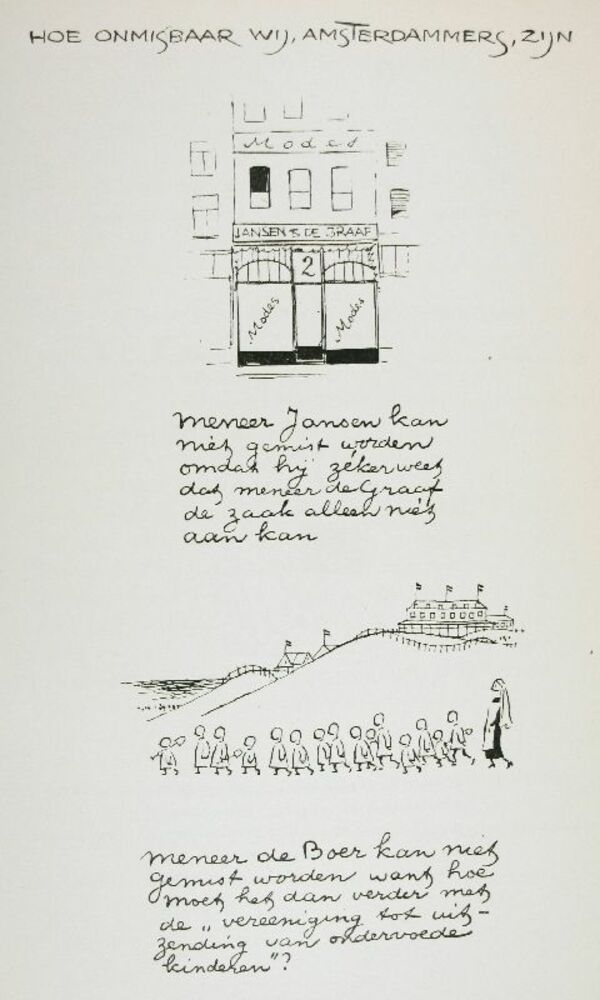 HOE ONMISBAAR WIJ, AMSTERDAMMERS, ZIJN
Modes
JANSEN & DE GRAAF
2
Modes
Modes
meneer Jansen kan
niet gemist worden
omdat hij zéker weet
dat meneer de Graaf
de zaak alleen niet
aan kan
meneer de Boer kan niet
gemist worden want hoe
moet het dan verder met
de „vereeniging tot uit-
zending van ondervoede
kinderen"?